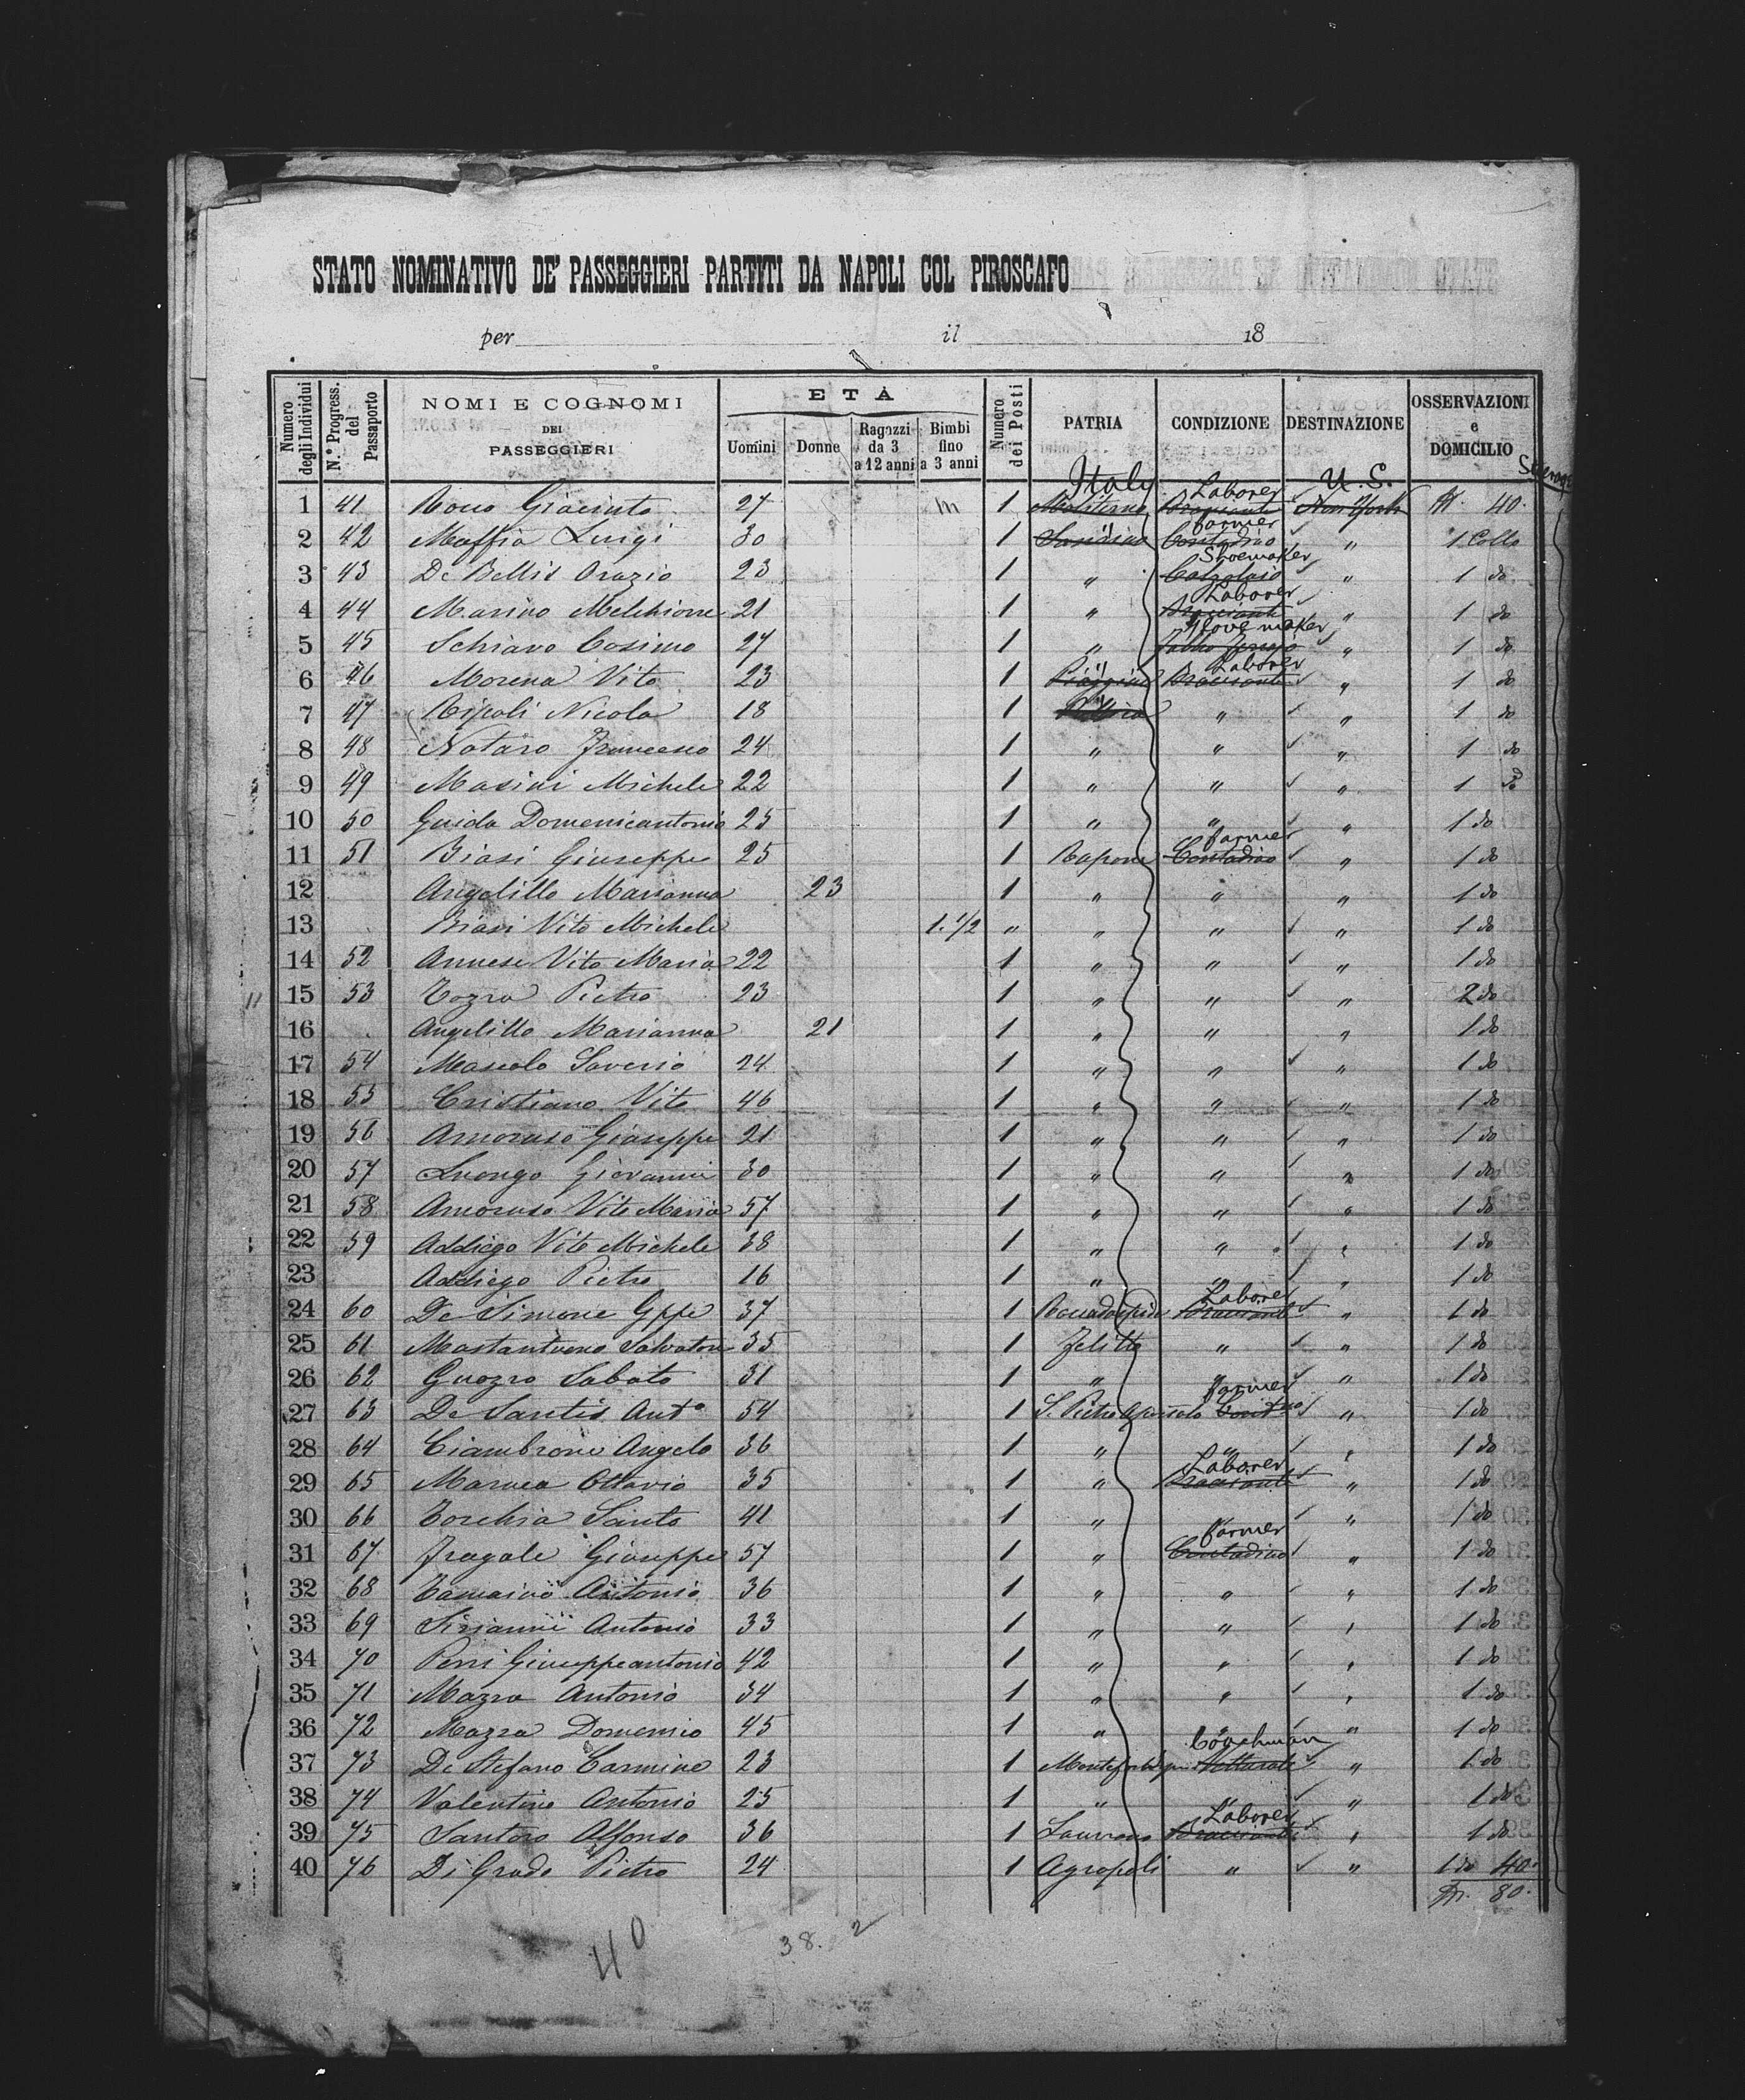 STATO NOMINATIVO DE' PASSEGGIERI PARTITI DA NAPOLI COL PIROSCAFO
per il 18
Numero degli Individui N.º Progress. del Passaporto NOMI E COGNOMI DEI PASSEGGIERI ETÀ Uomini Donne Ragazzi da 3 a 12 anni Bimbi fino a 3 anni Numero dei Posti PATRIA CONDIZIONE DESTINAZIONE OSSERVAZIONI e DOMICILIO
Italy Laborer U.S.
1 41 Rocco Giacinto 27 m 1 Moliterno Bracciante New York 40
farmer
2 42 Maffia Luigi 30 1 Contadino " 1 Collo
Shoemaker
3 43 De Bellis Orazio 23 1 " Calzolaio " 1 do
Laborer
4 44 Marino Melchiorre 21 1 " Bracciante " 1 do
Glove maker
5 45 Schiavo Cosimo 27 1 " " 1 do
Laborer
6 46 Morena Vito 23 1 Piaggine Bracciante " 1 do
7 47 Ripoli Nicola 18 1 " " 1 do
8 48 Notaro Francesco 24 1 " " " 1 do
9 49 Masini Michele 22 1 " " " 1 do
10 50 Guida Domenicantonio 25 1 " " " 1 do
farmer
11 51 Biasi Giuseppe 25 1 Rapone Contadino " 1 do
12 Angelillo Marianna 23 1 " " " 1 do
13 Biasi Vito Michele 1.1/2 " " " " 1 do
14 52 Annese Vito Maria 22 1 " " " 1 do
15 53 Tozza Pietro 23 1 " " " 2 do
16 Angelillo Marianna 21 1 " " " 1 do
17 54 Mascolo Saverio 24 1 " " " 1 do
18 55 Cristiano Vito 46 1 " " " 1 do
19 56 Amoruso Giuseppe 21 1 " " " 1 do
20 57 Luongo Giovanni 30 1 " " " 1 do
21 58 Amoruso Vito Maria 57 1 " " " 1 do
22 59 Addiego Vito Michele 38 1 " " " 1 do
23 Addiego Pietro 16 1 " " " 1 do
Laborer
24 60 De Simone Gppe 37 1 Roccadaspide Bracciante " 1 do
25 61 Mastantuono Salvatore 35 1 Felitto " " 1 do
26 62 Guozzo Sabato 31 1 " " " 1 do
farmer
27 63 De Santis Antº 54 1 S. Pietro Apostolo " 1 do
28 64 Ciambrone Angelo 36 1 " " " 1 do
Laborer
29 65 Maruca Ottavio 35 1 " Bracciante " 1 do
30 66 Torchia Santo 41 1 " " " 1 do
farmer
31 67 Fragale Giuseppe 57 1 " Contadino " 1 do
32 68 Tomaino Antonio 36 1 " " " 1 do
33 69 Sirianni Antonio 33 1 " " " 1 do
34 70 Perri Giuseppeantonio 42 1 " " " 1 do
35 71 Mazza Antonio 34 1 " " " 1 do
36 72 Mazza Domenico 45 1 " " " 1 do
Coachman
37 73 De Stefano Carmine 23 1 Vetturale " 1 do
38 74 Valentino Antonio 25 1 " " " 1 do
Laborer
39 75 Santoro Alfonso 36 1 Laurino Bracciante " 1 do
40 76 Di Grado Pietro 24 1 Agropoli " " 1 do 40
80
40 38. 2